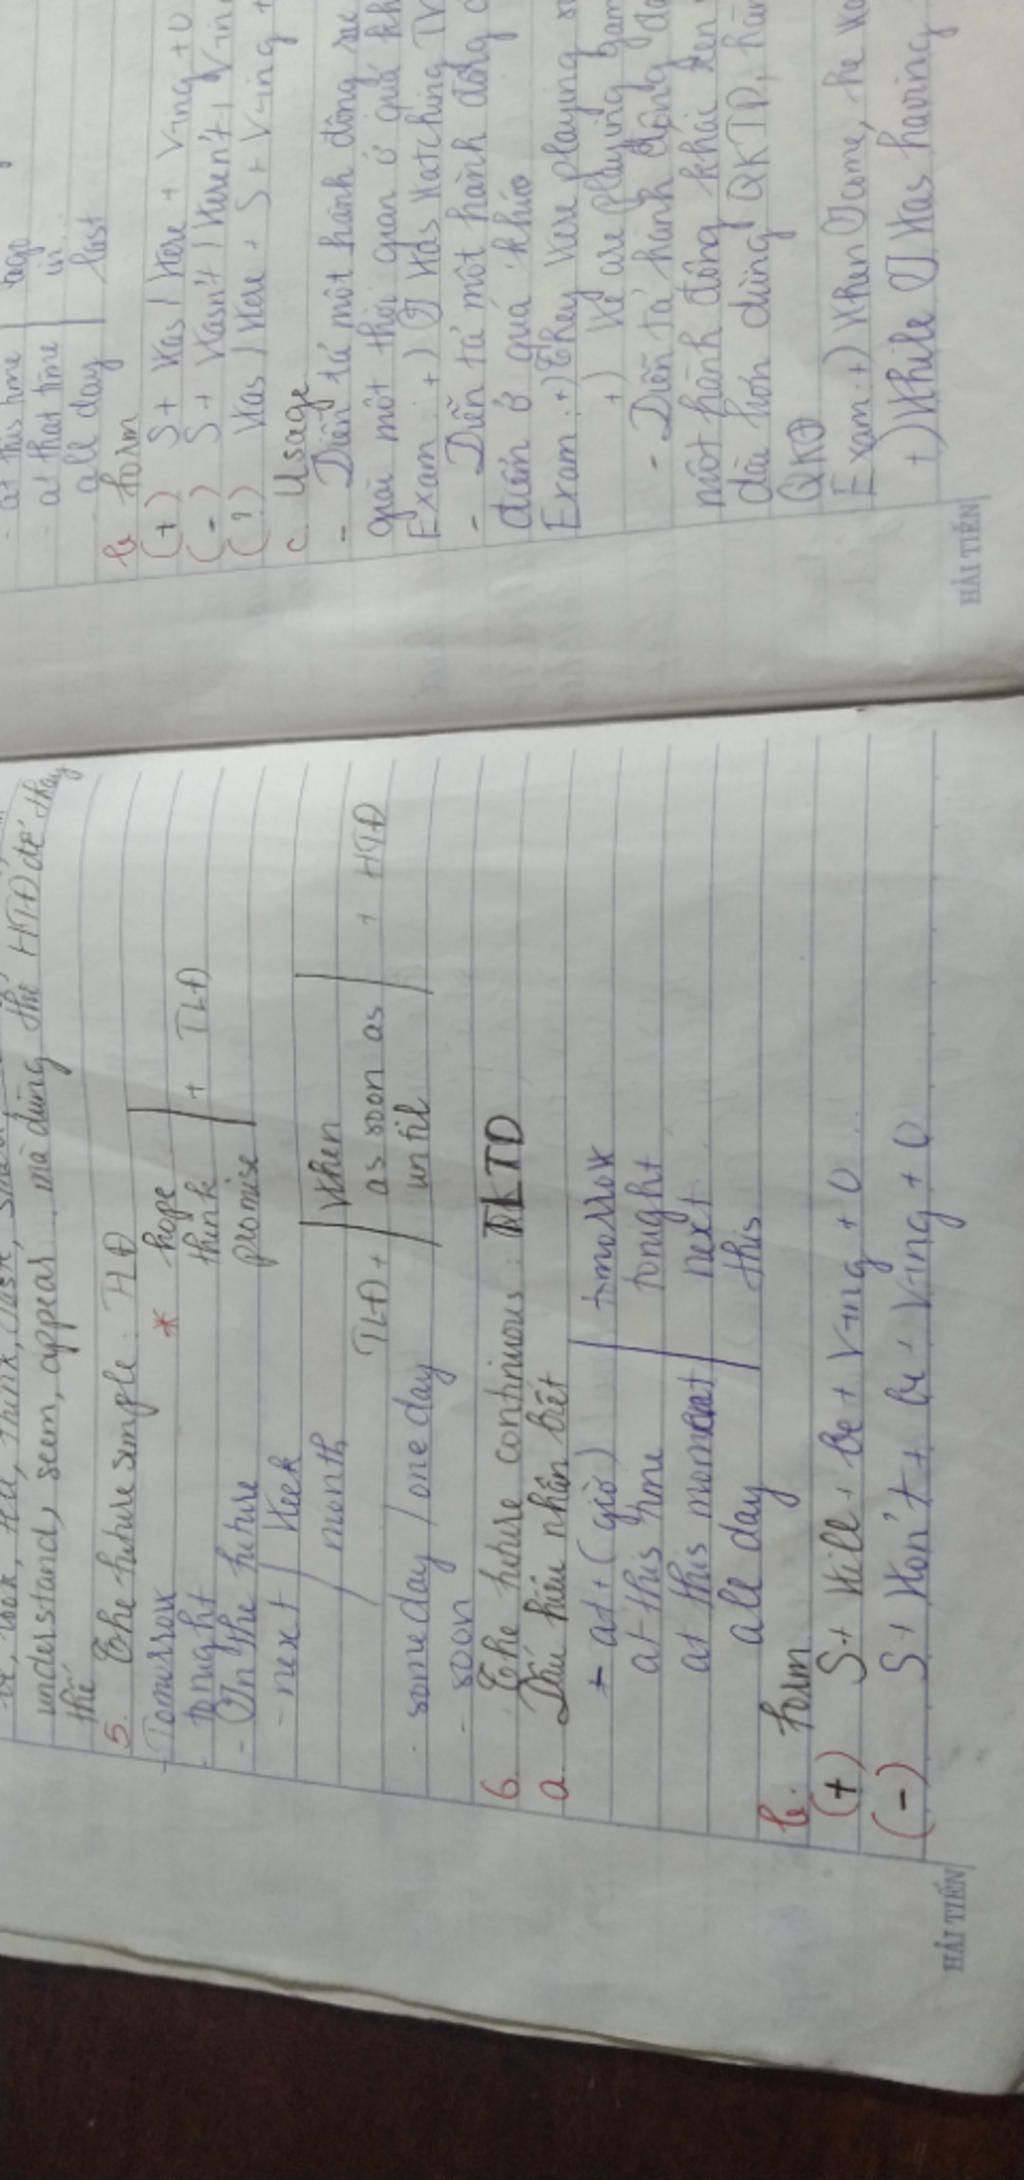 understand, seem, appear mà dùng thì HTĐ để thay
thế
5. The future simple: HĐ
- Tomorrow * hope
- tonight think + TLĐ
- In the future promise
- next / week
/ month When
TLĐ + as soon as + HTĐ
- some day / one day until
- soon
6. The future continuous: TKTD
a. Dấu hiệu nhận biết
+ at + (giờ) tomorrow
at this time tonight
at this moment next
all day this
b. form
(+) S + Will + be + V-ing + O
(-) S + Won't + be + V-ing + O
HẢI TIẾN
- at this time ago
- at that time in
- all day last
b. form
(+) S + Was / Were + V-ing + O
(-) S + Wasn't / Weren't + V-in
(?) Was / Were + S + V-ing +
c. Usage
- Diễn tả một hành động
một thời gian ở quá kh
Exam: +) I Was Watching TV
- Diễn tả một hành động
ở quá khứ
Exam: +) They Were playing
+) We are playing gam
- Diễn tả hành động
một hành động khác xen
dài hơn dùng QKTD, hàn
QKĐ
Exam: +) When I came, he wa
+) While I Was having
HẢI TIẾN